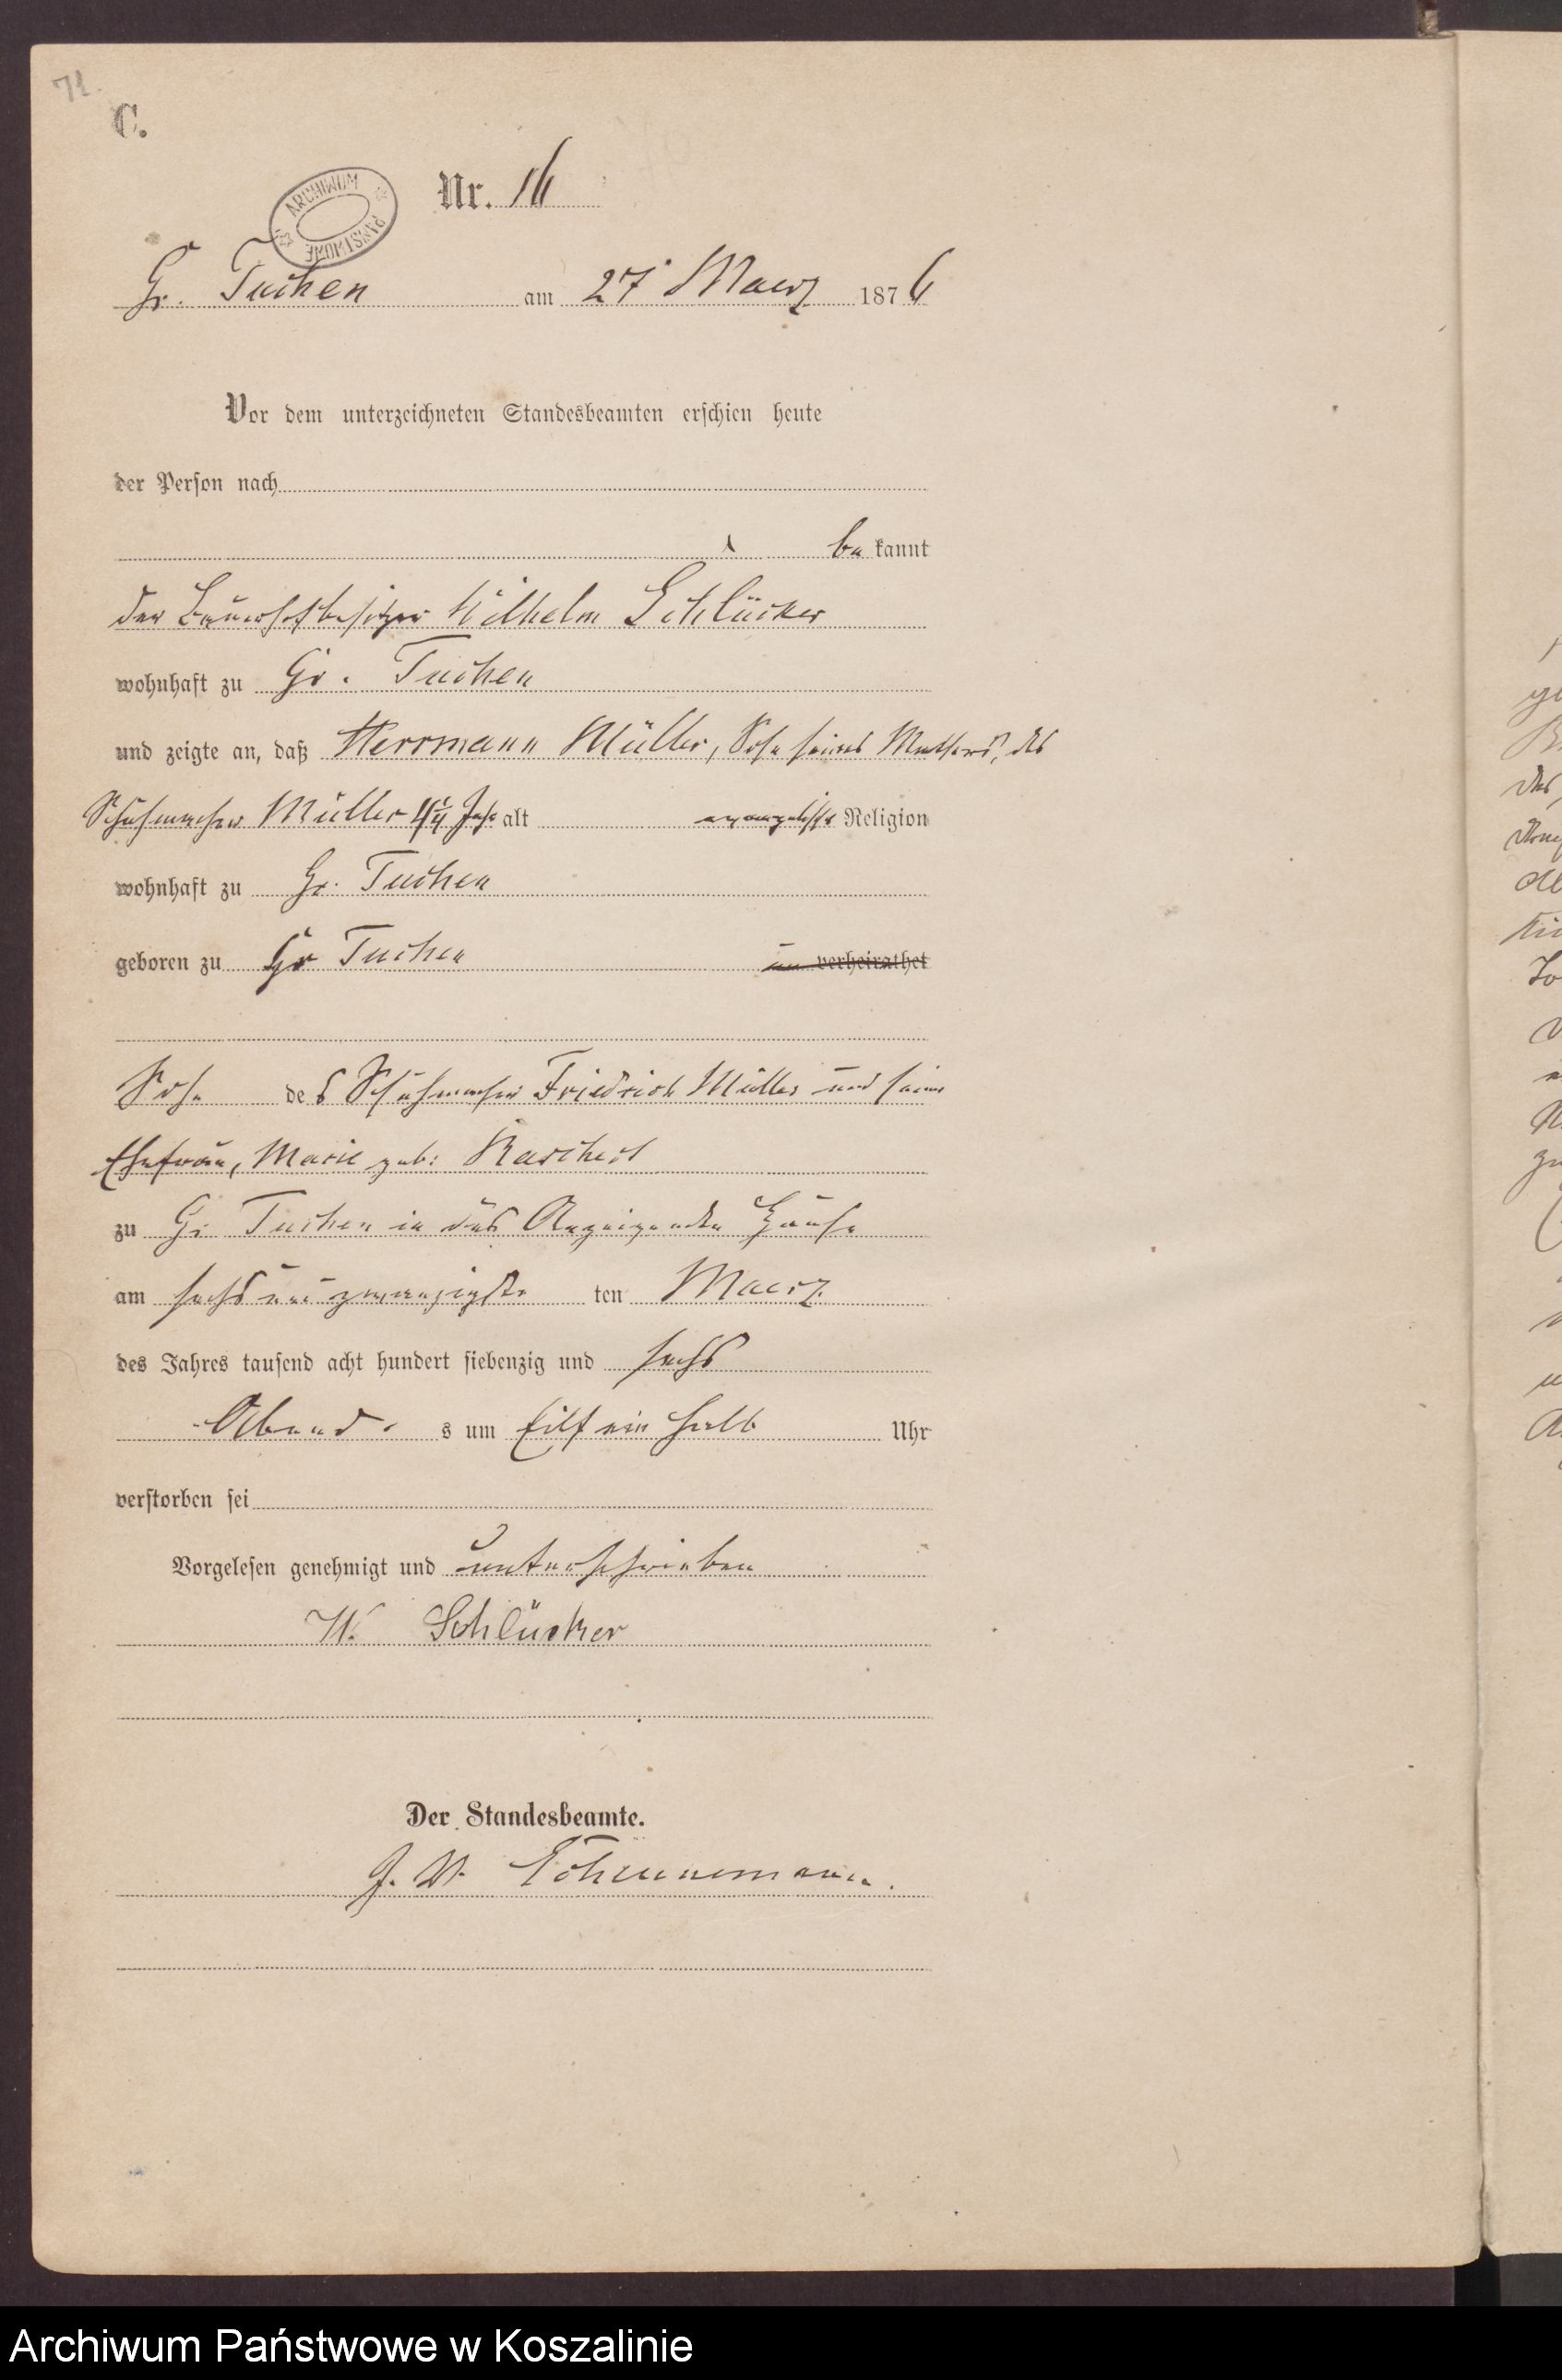 71.
C.
ARCHIWUM PAŃSTWOWE
Nr. 16
Gr. Tuchen am 27 Maerz 1876
Vor dem unterzeichneten Standesbeamten erschien heute
der Person nach
be kannt
der Bauerhofbesitzer Wilhelm Schlücker
wohnhaft zu Gr. Tuchen
und zeigte an, daß Herrmann Müller, Sohn seines Miethers, des
Schuhmacher Müller Jahr alt evangelische Religion
wohnhaft zu Gr. Tuchen
geboren zu Gr Tuchen un verheirathet
Sohn des Schuhmacher Friedrich Müller und seine
Ehefrau, Marie geb:
zu Gr Tuchen in des Anzeigenden Hause
am sechs und zwanzigste ten Maerz
des Jahres tausend acht hundert siebenzig und sechs
Abend s um Eilf ein halb Uhr
verstorben sei
Vorgelesen genehmigt und unterschrieben
W. Schlücker
Der Standesbeamte.
J. V.
Archiwum Państwowe w Koszalinie